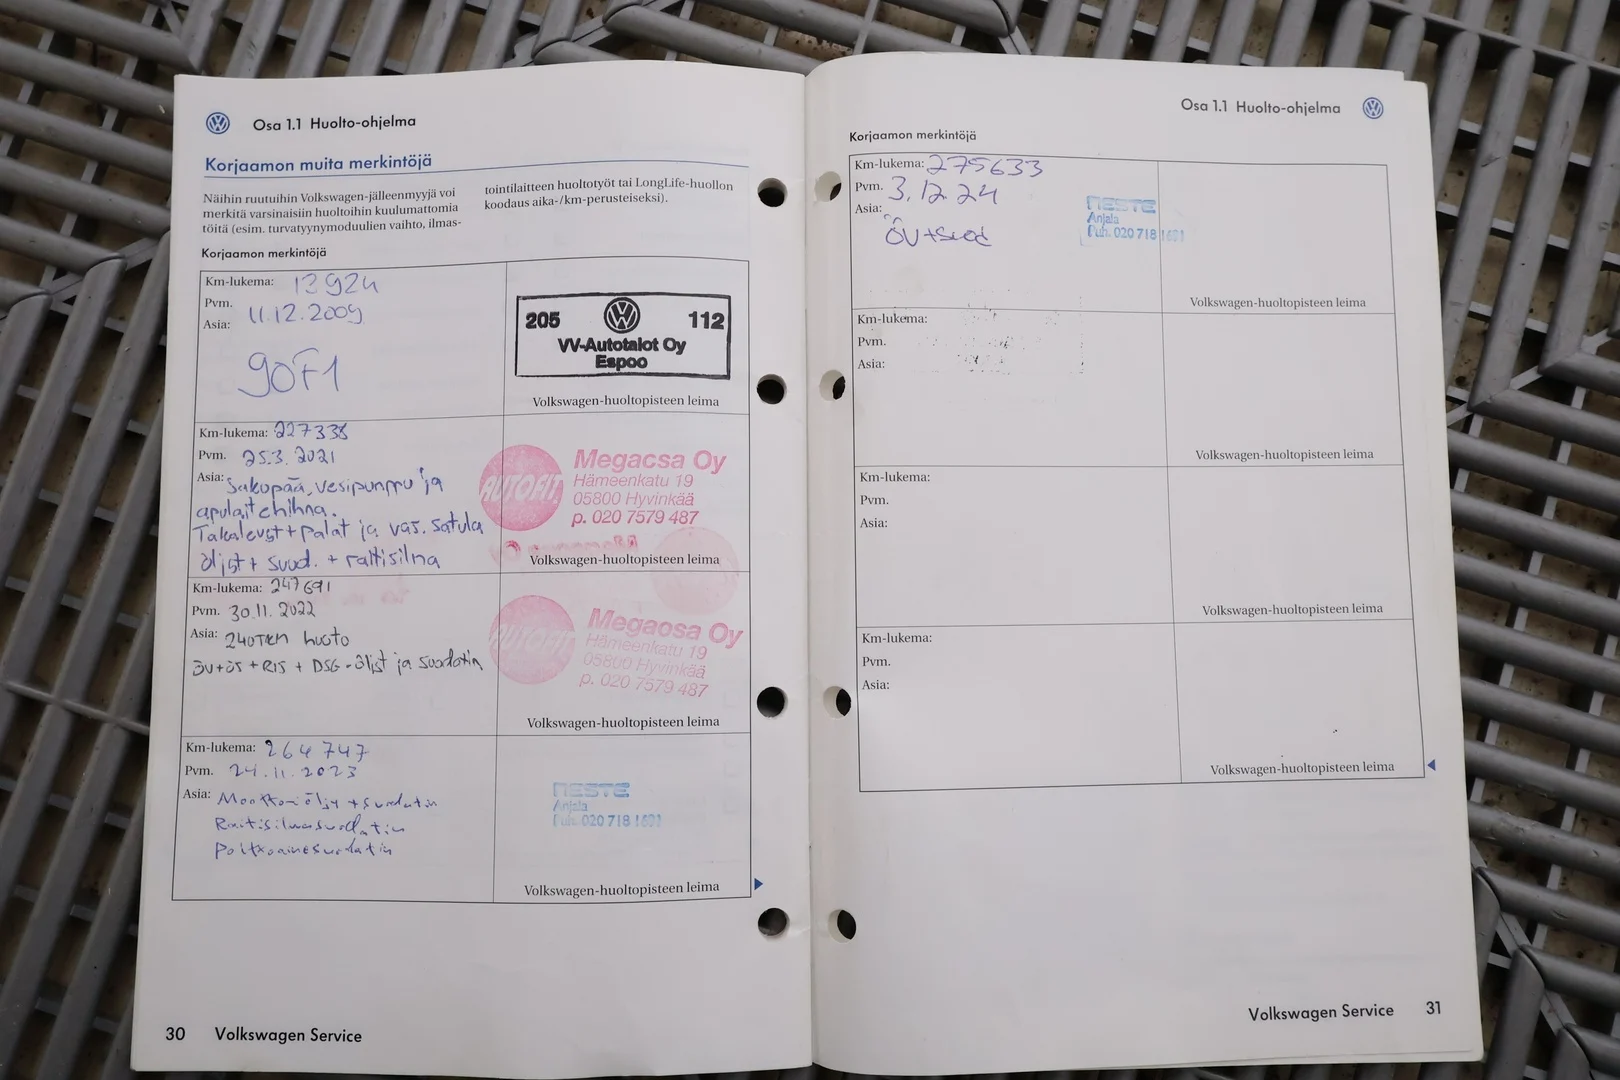 Osa 1.1 Huolto-ohjelma
Korjaamon muita merkintöjä
Näihin ruutuihin Volkswagen-jälleenmyyjä voi
merkitä varsinaisiin huoltoihin kuulumattomia
töitä (esim. turvatyynymoduulien vaihto, ilmas-
tointilaitteen huoltotyöt tai LongLife-huollon
koodaus aika-/km-perusteiseksi).
Korjaamon merkintöjä
Km-lukema: 13924
Pvm. 11.12.2009
Asia:
90F1
205 112
VV-Autotalot Oy
Espoo
Volkswagen-huoltopisteen leima
Km-lukema: 227338
Pvm. 25.3.2021
Asia: Jakopää, vesipumppu ja
apulaitehihna.
Takalevyt + palat ja vas. satula
öljyt + suod. + raitisilma
AUTOFIT
Megaosa Oy
Hämeenkatu 19
05800 Hyvinkää
p. 020 7579 487
Volkswagen-huoltopisteen leima
Km-lukema: 247691
Pvm. 30.11.2022
Asia: 240TKM huolto
ÖV+ÖS + RIS + DSG-öljyt ja suodatin
AUTOFIT
Megaosa Oy
Hämeenkatu 19
05800 Hyvinkää
p. 020 7579 487
Volkswagen-huoltopisteen leima
Km-lukema: 264747
Pvm. 24.11.2023
Asia: Moottoriöljy + suodatin
Raitisilmasuodatin
Polttoainesuodatin
NESTE
Anjala
Puh. 020 718 1691
Volkswagen-huoltopisteen leima
30 Volkswagen Service
Osa 1.1 Huolto-ohjelma
Korjaamon merkintöjä
Km-lukema: 275633
Pvm. 3.12.24
Asia:
ÖV+Suod
NESTE
Anjala
Puh. 020 718 1691
Volkswagen-huoltopisteen leima
Km-lukema:
Pvm.
Asia:
Volkswagen-huoltopisteen leima
Km-lukema:
Pvm.
Asia:
Volkswagen-huoltopisteen leima
Km-lukema:
Pvm.
Asia:
Volkswagen-huoltopisteen leima
Volkswagen Service 31